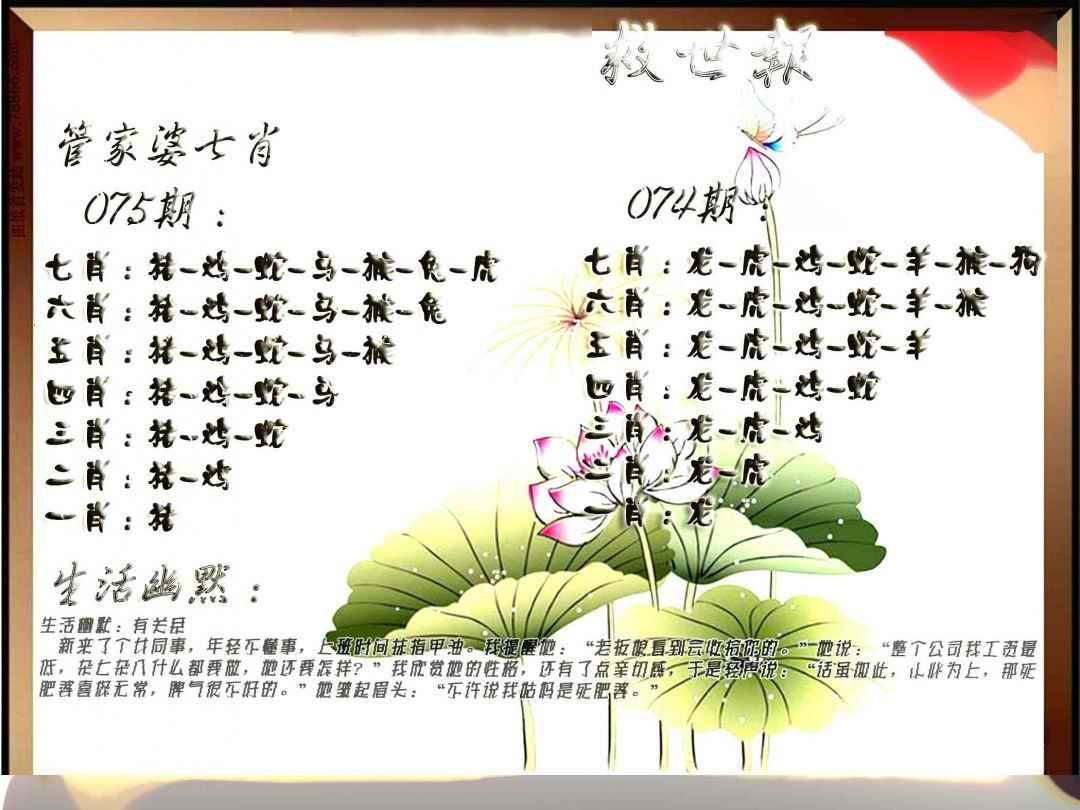 救世報
管家婆七肖
075期：
七肖：猪-鸡-蛇-马-猴-兔-虎
六肖：猪-鸡-蛇-马-猴-兔
五肖：猪-鸡-蛇-马-猴
四肖：猪-鸡-蛇-马
三肖：猪-鸡-蛇
二肖：猪-鸡
一肖：猪
074期：
七肖：龙-虎-鸡-蛇-羊-猴-狗
六肖：龙-虎-鸡-蛇-羊-猴
五肖：龙-虎-鸡-蛇-羊
四肖：龙-虎-鸡-蛇
三肖：龙-虎-鸡
二肖：龙-虎
一肖：龙
生活幽默：
生活幽默：有关系
新来了个女同事，年轻不懂事，上班时间抹指甲油。我提醒她：“老板娘看到会收拾你的。”她说：“整个公司我工资最
低，杂七杂八什么都要做，她还要怎样？”我欣赏她的性格，还有了点亲切感，于是轻声说：“话虽如此，小心为上，那死
肥婆喜怒无常，脾气很不好的。”她皱起眉头：“不许说我姑妈是死肥婆。”